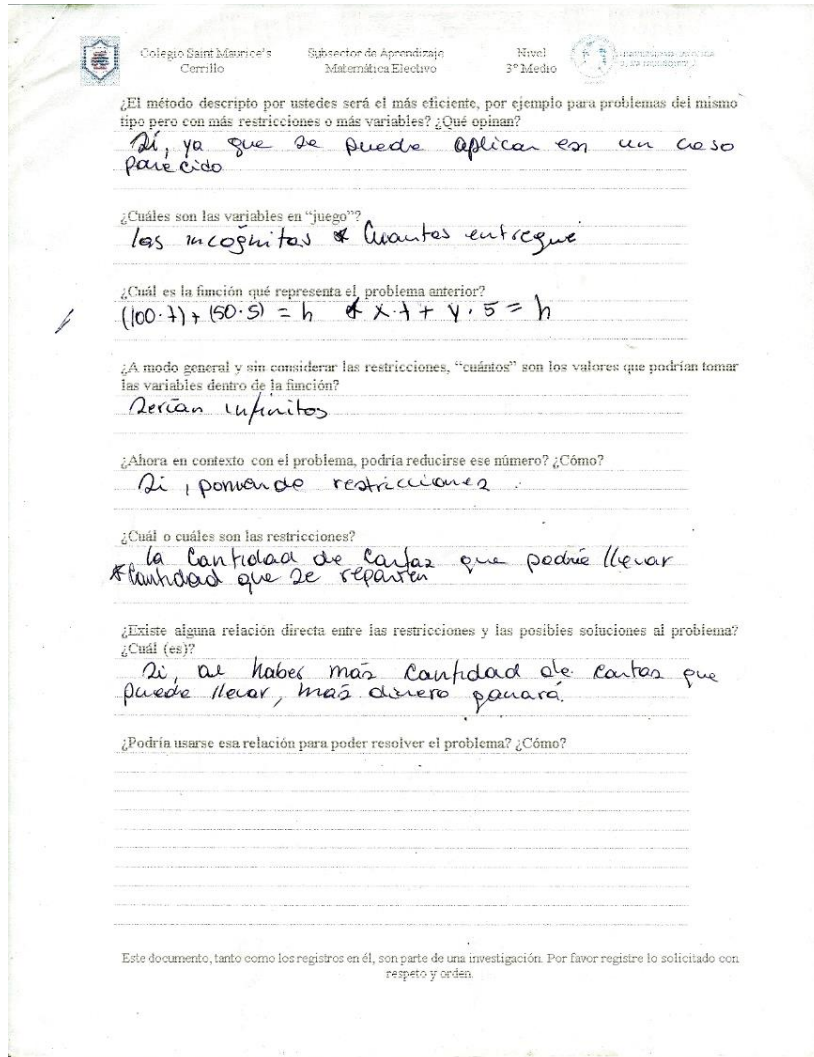 Colegio Saint Maurice's
Cerrillo
Subsector de Aprendizaje
Matemática Electivo
Nivel
3° Medio
¿El método descripto por ustedes será el más eficiente, por ejemplo para problemas del mismo
tipo pero con más restricciones o más variables? ¿Qué opinan?
Sí, ya que se puede aplicar en un caso
parecido
¿Cuáles son las variables en "juego"?
las incógnitas * Cuantas entregué
¿Cuál es la función qué representa el problema anterior?
(100·7) + (50·5) = h * x·7 + y·5 = h
¿A modo general y sin considerar las restricciones, "cuántos" son los valores que podrían tomar
las variables dentro de la función?
Serían infinitos
¿Ahora en contexto con el problema, podría reducirse ese número? ¿Cómo?
Si, poniendo restricciones.
¿Cuál o cuáles son las restricciones?
la Cantidad de Cartas que podría llevar
*Cantidad que se reparten
¿Existe alguna relación directa entre las restricciones y las posibles soluciones al problema?
¿Cuál (es)?
Si, al haber más Cantidad de Cartas que
puede llevar, más dinero ganará.
¿Podría usarse esa relación para poder resolver el problema? ¿Cómo?
Este documento, tanto como los registros en él, son parte de una investigación. Por favor registre lo solicitado con
respeto y orden.